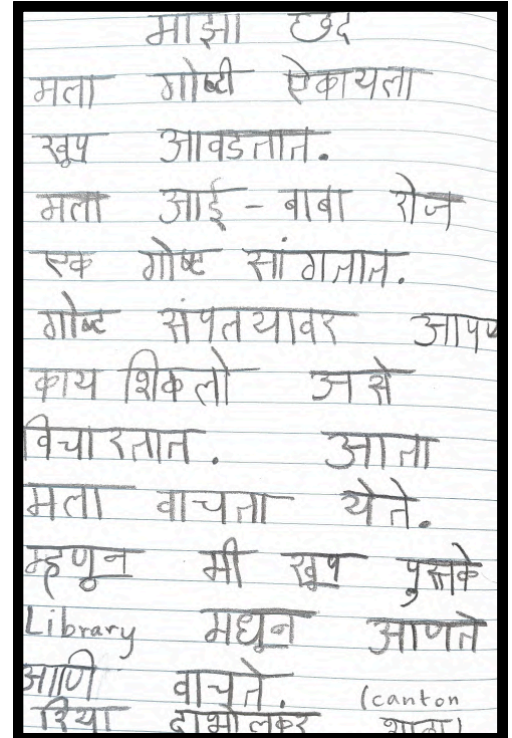 माझा छंद
मला गोष्टी ऐकायला
खूप आवडतात.
मला आई - बाबा रोज
एक गोष्ट सांगतात.
गोष्ट संपतयावर आपण
काय शिकलो असे
विचारतात. आता
मला वाचता येते.
म्हणून मी खूप पुस्तके
Library मधून आणते
आणि वाचते. (canton
रिया दाभोलकर शाळा)